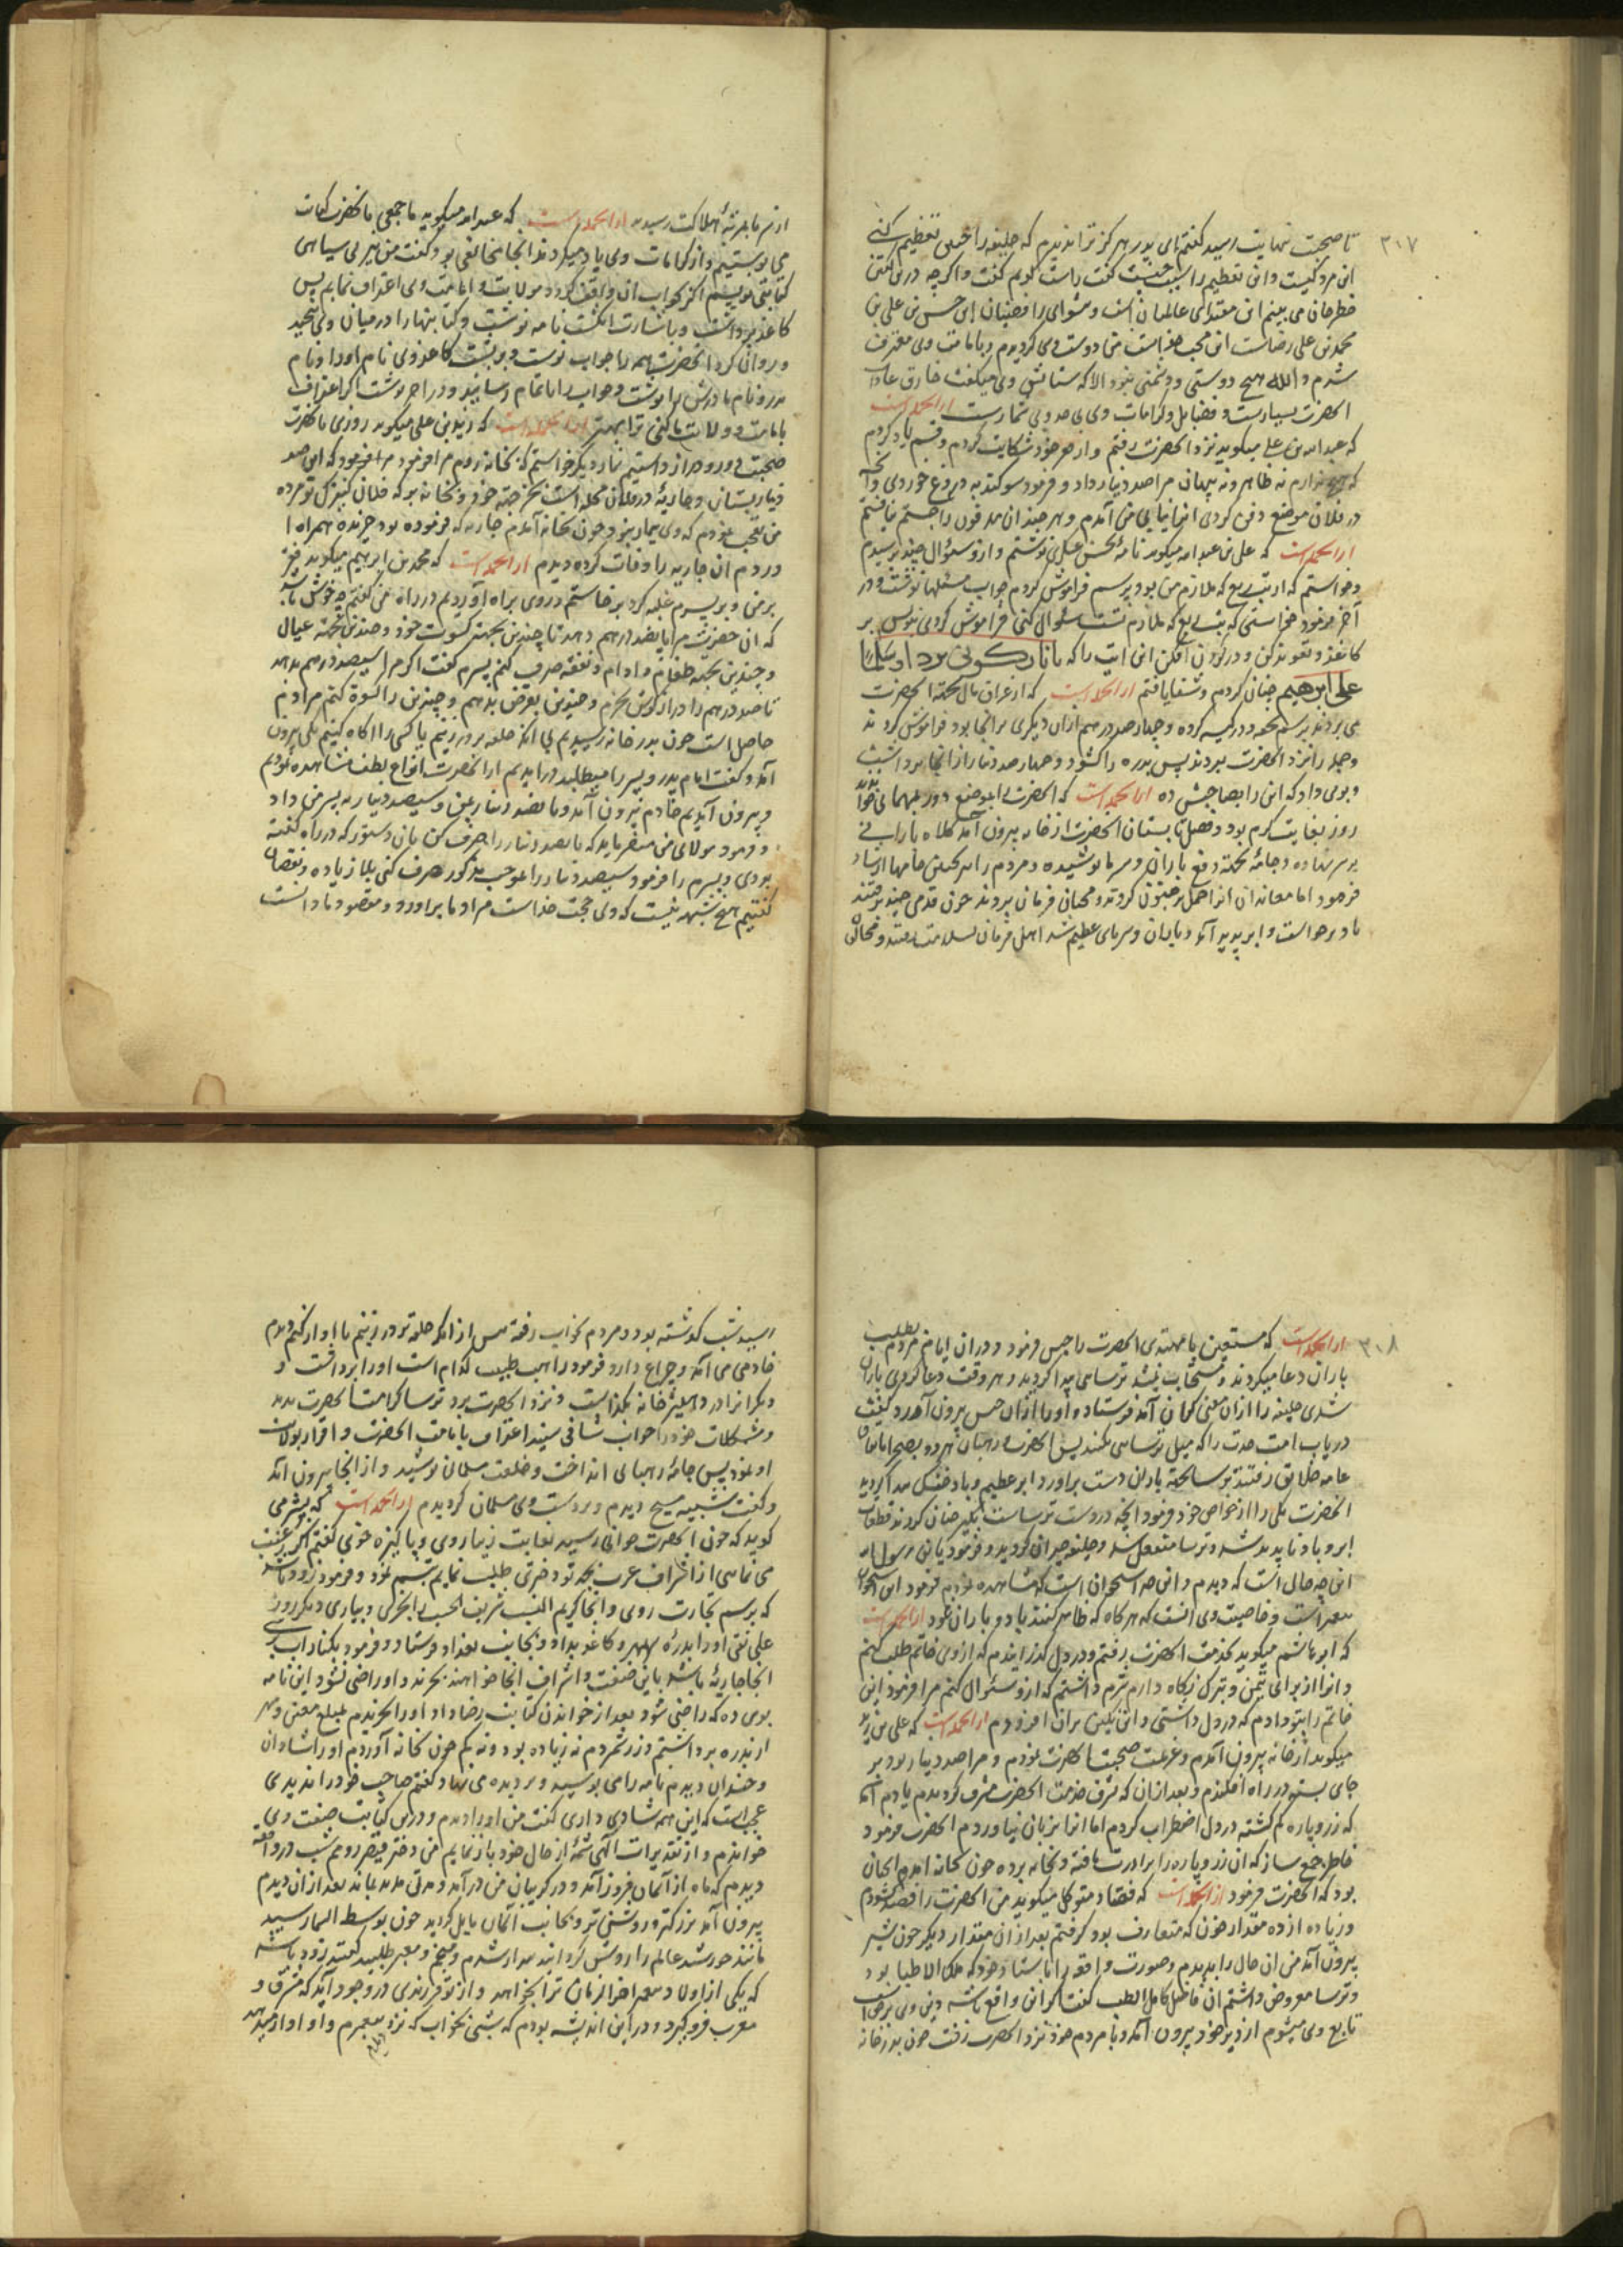 ۳۰۷
تا صحبت نهایت رسید گفتم ای پدر هرگز ترا ندیدم که خلیفه را چنین تعظیم کنی
این مرد کیست و این تعظیم را سبب چیست گفت راست گویم گفت و اگرچه درین گفتن
خطر جان می بینم این مقتدای عالمیان است و پیشوای رافضیان ابن حسن بن علی بن
محمد بن علی رضاست این عجب من دوست وی گردیدم و بامامت وی معترف
شدم و الله هیچ دوستی و دشمنی نبود الا که ستایش وی میگفت خارق عادات
الحضرت بسیارست و فضایل و کرامات وی بی حد و بی شمارست از انجمله است
که عبدالله بن علی میگوید نزد آنحضرت رفتم و از فقر خود شکایت کردم و قسم یاد کردم
که هیچ ندارم نه ظاهر و نه پنهان مرا صد دینار داد و فرمود سوگند به دروغ خوردی و آنچه
در فلان موضع دفن کردی انرا نیابی من آمدم و هر چند آن مدفون را جستم نیافتم
از انجمله است که علی بن عبدالله میگوید نامه بحسن عسکری نوشتم و ازو سئوال چند پرسیدم
و خواستم که از تب ربع که ملازم من بود پرسم فراموش کردم جواب مسئلها نوشت و در
آخر فرمود خواستی که تب ربع که ملازم تست سئوال کنی فراموش کردی بنویس بر
کاغذ و تعویذ کن و در گردن آفکن این آیت را که یا نار کونی بردا و سلاما
علی ابرهیم چنان کردم و شفا یافتم از انجمله است که از عراق مال بجهة آنحضرت
می بردند بر سم تحفه و در کیسه کرده و چهارصد درهم از آن دیگری در انجا بود فراموش کردند
و جمله را نزد آنحضرت بردند پس بدره را کشود و چهارصد دینار از انجا برداشت
و بوی داد که این را بصاحبش ده از انجمله است که آنحضرت را بموضع دور بمهمانی خوانده بودند
روز بغایت گرم بود و فصل تابستان آنحضرت از خانه بیرون آمد کلاه بارانی
بر سر نهاده و جامه بجهة دفع باران و سرما پوشیده و مردم را به چنین جامها ارشاد
فرمود اما معاندان انرا حمل بر جنون کردند و محبان فرمان بردند چون قدمی چند رفتند
باد برخاست و ابر پدید آمد و باران و سرمای عظیم شد اهل فرمان سلامت رفتند و مخالفان
از سرما بمرتبهٔ هلاکت رسیدند از انجمله است که عبدالله میگوید با جمعی بآنحضرت کتابت
می نوشتیم و از کرامات وی یاد میکردند انجا مخالفی بود گفت من نیز بی سیاهی
کتابتی نویسم اگر بجواب آن واقف گردد بولایت و امامت وی اعتراف نمایم پس
کاغذ برداشت و باشارت انگشت نامه نوشت و کتابتها را در میان وی پیچید
و روان کرد آنحضرت همه را جواب نوشت و بر پشت کاغذ وی نام او را و نام
پدر و نام مادرش را نوشت و جواب را تمام رسانید و در آخر نوشت اگر اعتراف
بامامت و ولایت ما کنی ترا بهتر از انجمله است که زید بن علی میگوید روزی با آنحضرت
صحبت دور و دراز داشتیم نماز دیگر خواستم که بخانه روم مرا فرمود که این صد
دینار بستان و جاریهٔ در فلان محله است بجهة خود بخر و بخانه بر که فلان کنیزک تو مرده
من تعجب نمودم که وی بیمار نبود چون بخانه آمدم جاریه که فرموده بود خریده همراه
بردم آن جاریه را وفات کرده دیدم از انجمله است که محمد بن ابراهیم میگوید فقر
بر من و بر پسرم غلبه کرد برخاستم و روی براه آوردیم در راه من گفتم چه خوش باشد
که آن حضرت مرا پانصد درهم دهد تا چندین بجهت کسوت خود و چندین بجهة عیال
و چندین بجهة طعام و ادام و نفقه صرف کنم پسرم گفت اگر مرا سیصد درهم بدهد
تا صد درهم را درازگوش بخرم و چندین بقرض بدهم و چندین را کسوة کنم مرادم
حاصل است چون بدر خانه رسیدیم بی آنکه حلقه بر در زنیم یا کسی را آگاه کنیم یکی بیرون
آمد و گفت امام پدر و پسر را میطلبد درآمدیم از آنحضرت انواع لطف مشاهده نمودیم
و بیرون آمدیم خادم بیرون آمد و پانصد دینار بمن و سیصد دینار به پسر من داد
و فرمود مولای من میفرماید که پانصد دینار را صرف کن بآن دستور که در راه گفته
بودی و پسرم را فرمود سیصد دینار را بموجب مذکور صرف کنی بلا زیاده و نقصان
گفتیم هیچ شبهه نیست که وی حجت خداست مراد ما براورد و مقصود ما دانست
۳۰۸
از انجمله است که مستعین یا مهتدی آنحضرت را حبس فرمود و در آن ایام مردم بطلب
باران دعا میکردند و مستجاب نمیشد ترسایی پیدا گردید و هر وقت دعا کردی باران
شدی خلیفه را از آن معنی گران آمد فرستاد و او را از آن حبس بیرون آورد و گفت
دریاب امت جدت را که میل ترسایی میکنند پس آنحضرت و رهبان هر دو بصحرا با تمامی
عامه خلایق رفتند ترسا بجهة باران دست براورد و ابر عظیم و باد خنک پیدا گردید
آنحضرت یکی را از خواص خود فرمود آنچه در دست ترساست بگیر چنان کردند قطعات
ابر و باد ناپدید شد و ترسا منفعل شد و خلیفه حیران گردید و فرمود یا بن رسول الله
این چه حال است که دیدم و این چه استخوان است که مشاهده نمودیم فرمود این استخوان
پیغمبر است و خاصیت وی آنست که هر گاه که ظاهر کنند باد و باران شود از انجمله است
که ابو هاشم میگوید بخدمت آنحضرت برفتم و در دل گذرانیدم که از وی خاتم طلب کنم
و انرا از برای تیمن و تبرک نگاه دارم شرم داشتم که ازو سئوال کنم مرا فرمود این
خاتم را بتو دادم که در دل داشتی و این نگین بر آن افزودم از انجمله است که علی بن زید
میگوید از خانه بیرون آمدم و عزیمت صحبت آنحضرت نمودم و مرا صد دینار بود بر
جای بسته در راه افکندم و بعد از آن که بشرف خدمت آنحضرت مشرف گردیدم یادم آمد
که زر و پاره گم گشته در دل اضطراب کردم اما انرا بزبان نیاوردم آنحضرت فرمود
خاطر جمع ساز که آن زر و پاره را برادرت یافته و بخانه برده چون بخانه آمدم آنچنان
بود که آنحضرت فرمود از انجمله است که فصاد متوکل میگوید من آنحضرت را فصد نمودم
و زیاده از ده مقدار خون که متعارف بود گرفتم بعد از آن مقدار دیگر چون شیر
بیرون آمد من آن حال را بدیدم و صورت واقعه را باستاد خود که ملک الاطبا بود
و ترسا معروض داشتم آن فاضل کامل الطب گفت اگر این واقع باشد دین وی برحق است
تابع وی میشوم از دیر خود بیرون آمد و با مردم خود نزد آنحضرت رفت چون بدر خانه
رسید شب گذشته بود و مردم بخواب رفته پس از آنکه حلقه بر در زنیم یا آواز کنیم دیدم
خادمی می آمد و چراغ دارد فرمود راهب طبیب کدام است او را برداشت و
دیگرانرا در دهلیز خانه بگذاشت و نزد آنحضرت برد ترسا کرامت آنحضرت بدید
و مشکلات خود را جواب شافی شنید اعتراف بامامت آنحضرت و اقرار بولایت
او نمود پس جامه رهبانی انداخت و خلعت مسلمانی پوشید و از انجا بیرون آمد
و گفت شبیه مسیح دیدم و بر دست وی مسلمان گردیدم از انجمله است که بشر می
گوید که چون آنحضرت بجوانی رسید بغایت زیبا روی و پاکیزه خوی گفتم اگر رغبت
می نمایی از اشراف عرب بجهة تو دختری طلب نمایم تبسم نمود و فرمود زود باشد
که برسم تجارت روی و انجا کریم النسب شریف الحسب را بخری و بیاری دیگر روز
علی نقی او را بدره بمهر و کاغذ بداد و بجانب بغداد فرستاد و فرمود بکنار آب رسی
انجا جاریهٔ باشد باین صفت و اشراف انجا خواهند بخرند و او راضی نشود این نامه
بوی ده که راضی شود بعد از خواندن کتابت رضا داد او را خریدم بمبلغ معین و مهر
از بدره برداشتم و زر شمردم نه زیاده بود و نه کم چون بخانه آوردم او را شادان
و خندان دیدم نامه را می بوسید و بر دیده می نهاد گفتم صاحب خود را ندیدی
عجب است که این همه شادی داری گفت من او را دیدم و درین کتابت صفت وی
خواندم و از تقدیرات الهی شمهٔ از حال خود باز نمایم من دختر قیصر رومم شب در واقعه
دیدم که ماه از آسمان فروز آمد و در گریبان من درآمد و مدتی مدید بماند بعد از آن دیدم
بیرون آمد بزرگتر و روشنی تر و بجانب آسمان مایل گردید چون بوسط السما رسید
مانند خورشید عالم را روشن گردانید بیدار شدم و منجم و معبر طلبید گفتند زود باشد
که یکی از اولاد پیغمبر آخر الزمان ترا بخواهد و از تو فرزندی در وجود آید که مشرق و
مغرب فرو گیرد و در این اندیشه بودم که شبی بخواب که نزد پیغمبرم و او آواز میدهد